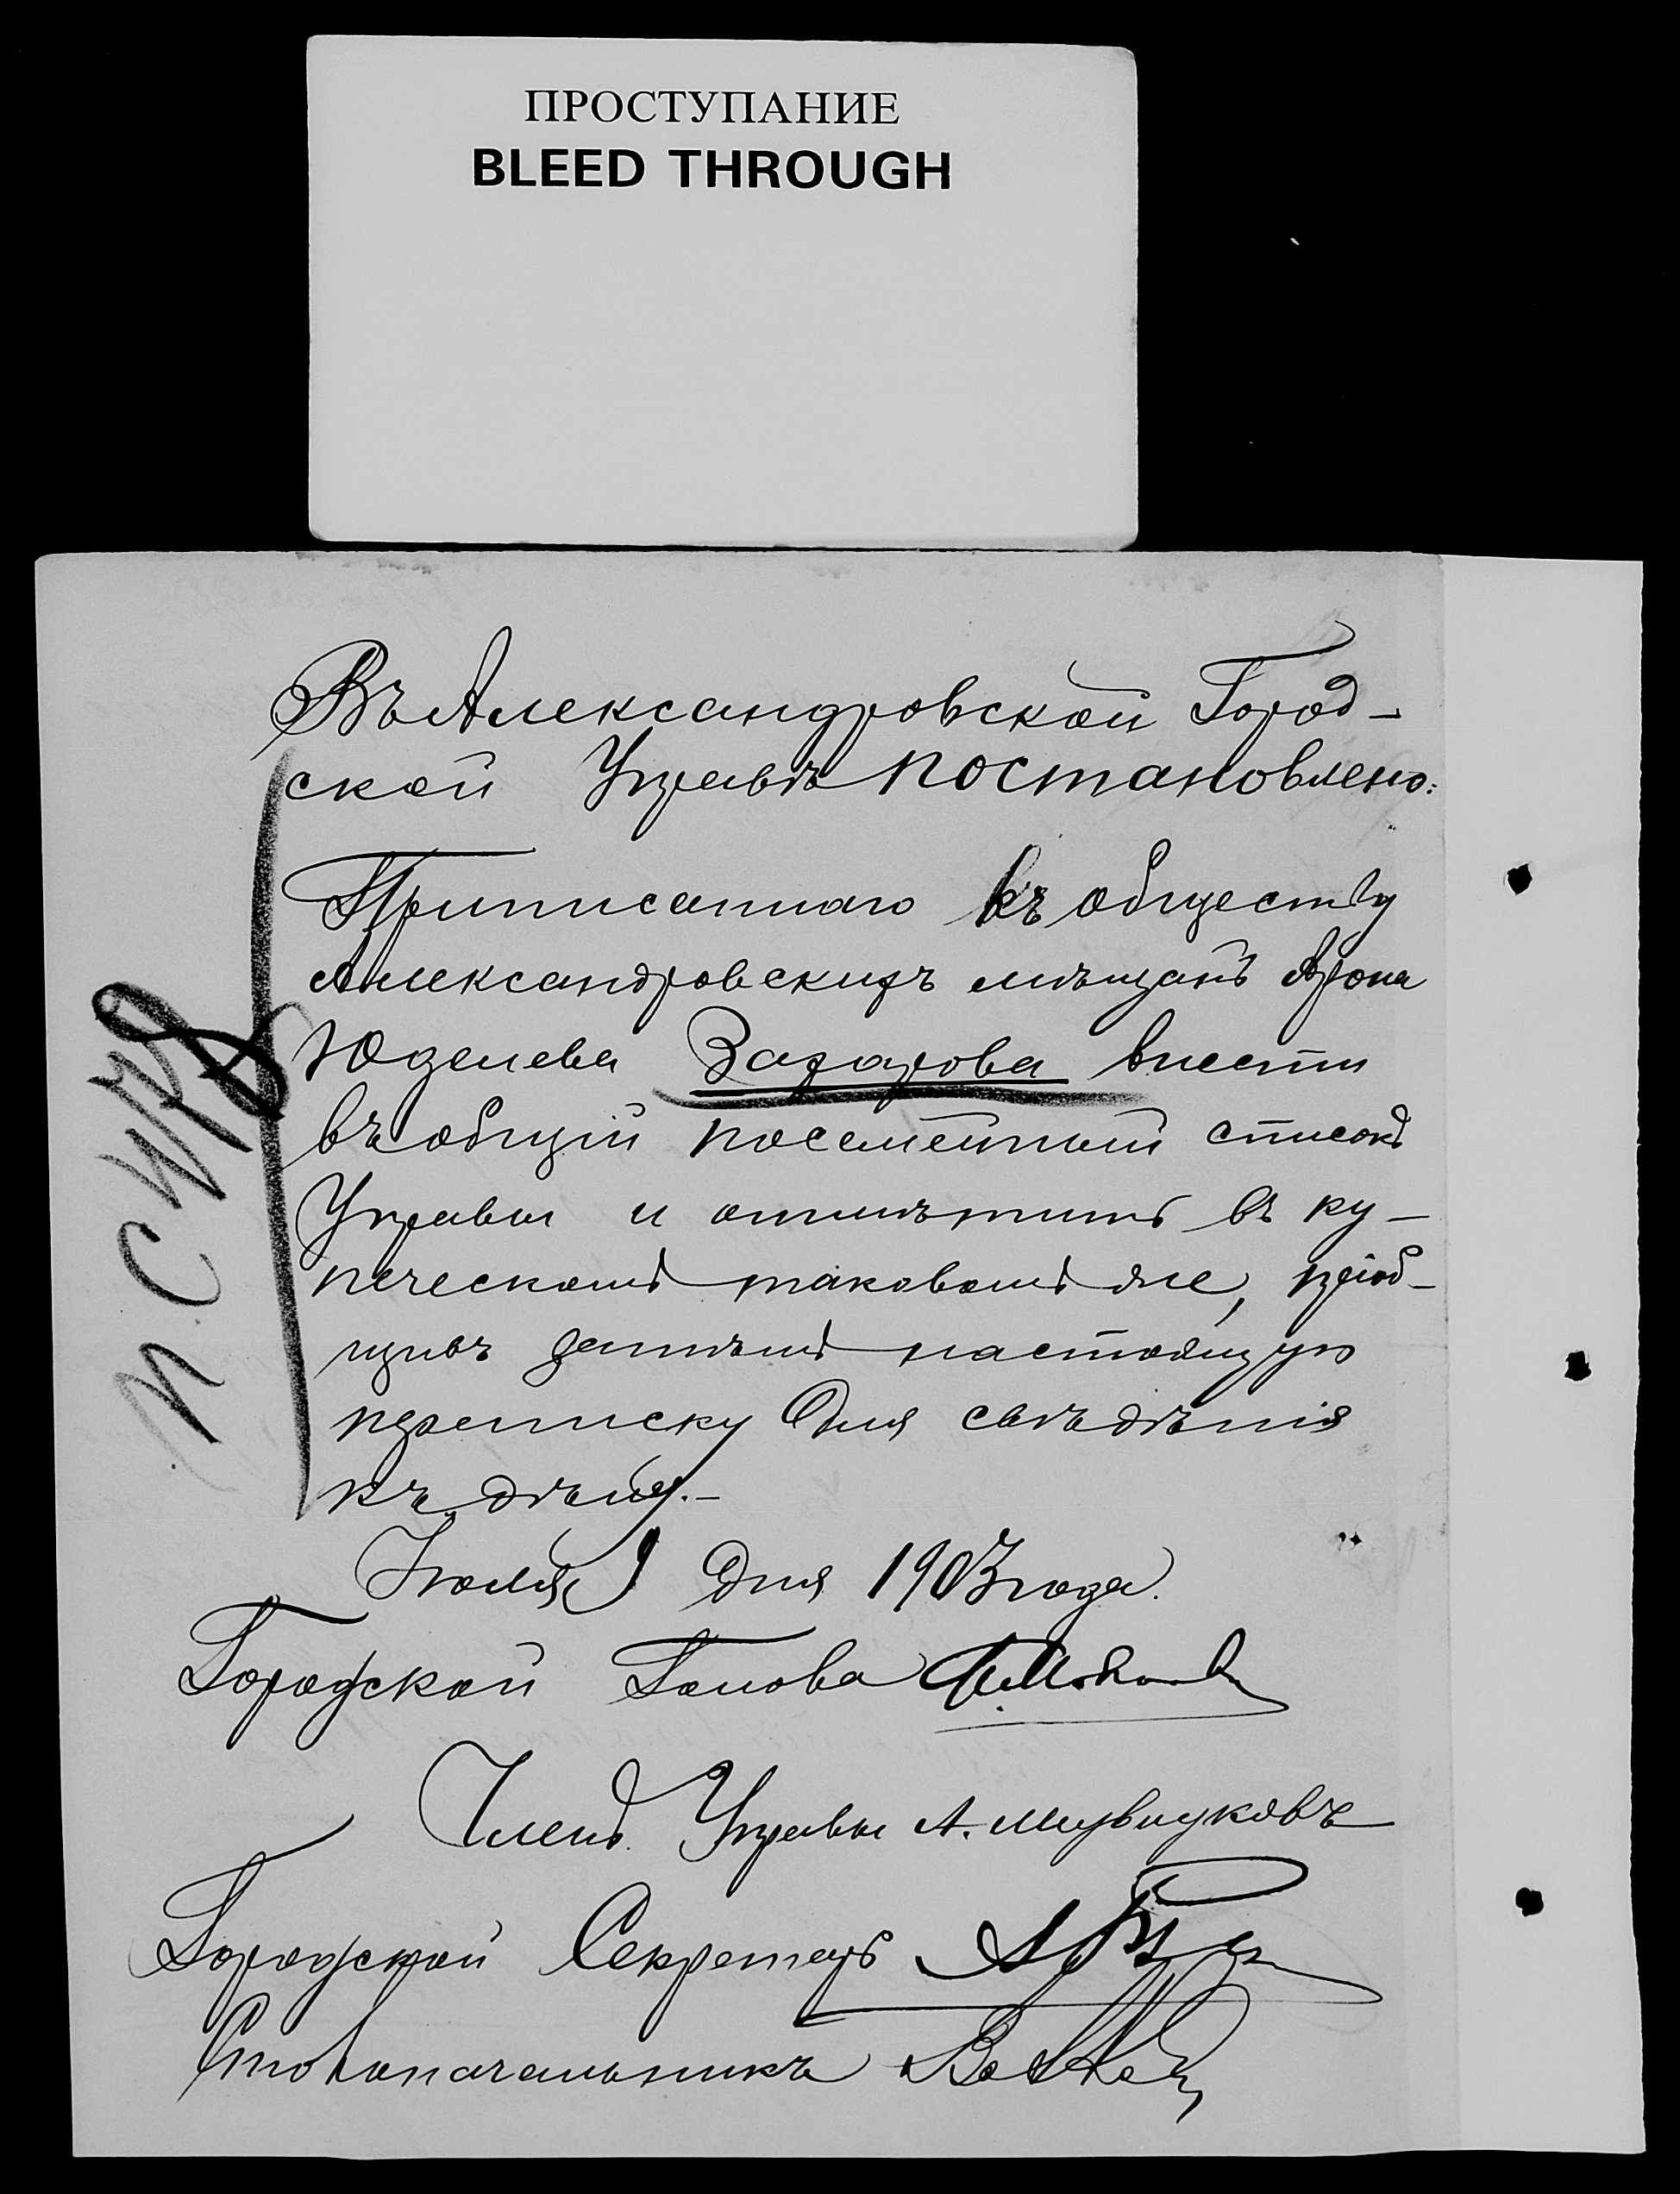 ПРОСТУПАНИЕ
BLEED THROUGH
Въ Александровской Город-
ской Управѣ постановлено:
Приписаннаго къ обществу
Александровскихъ мѣщанъ Арона
Юделева Захарова внести
въ общій посемейный списокъ
Управы и отмѣтить въ ку-
печескомъ таковомъ же, пріоб-
щивъ затѣмъ настоящую
переписку для свѣдѣнія
къ дѣлу.-
Іюля 9 дня 1903 года.
Городской Голова
Членъ Управы А.
Городской Секретарь
Столоначальникъ